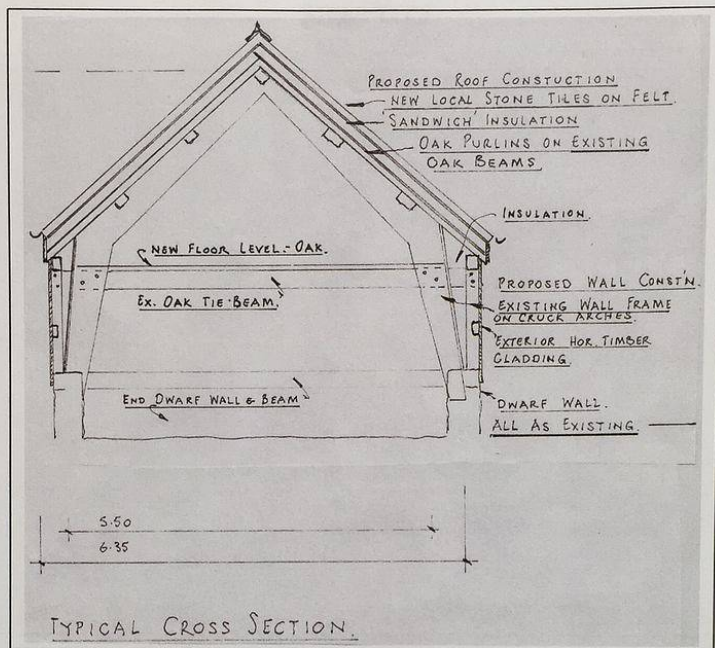 PROPOSED ROOF CONSTUCTION
NEW LOCAL STONE TILES ON FELT.
'SANDWICH' INSULATION
OAK PURLINS ON EXISTING
OAK BEAMS.
INSULATION.
NEW FLOOR LEVEL:- OAK.
EX. OAK TIE-BEAM.
PROPOSED WALL CONST'N.
EXISTING WALL FRAME
ON CRUCK ARCHES.
EXTERIOR HOR. TIMBER
CLADDING.
END DWARF WALL & BEAM
DWARF WALL.
ALL AS EXISTING.
5.50
6.35
TYPICAL CROSS SECTION.